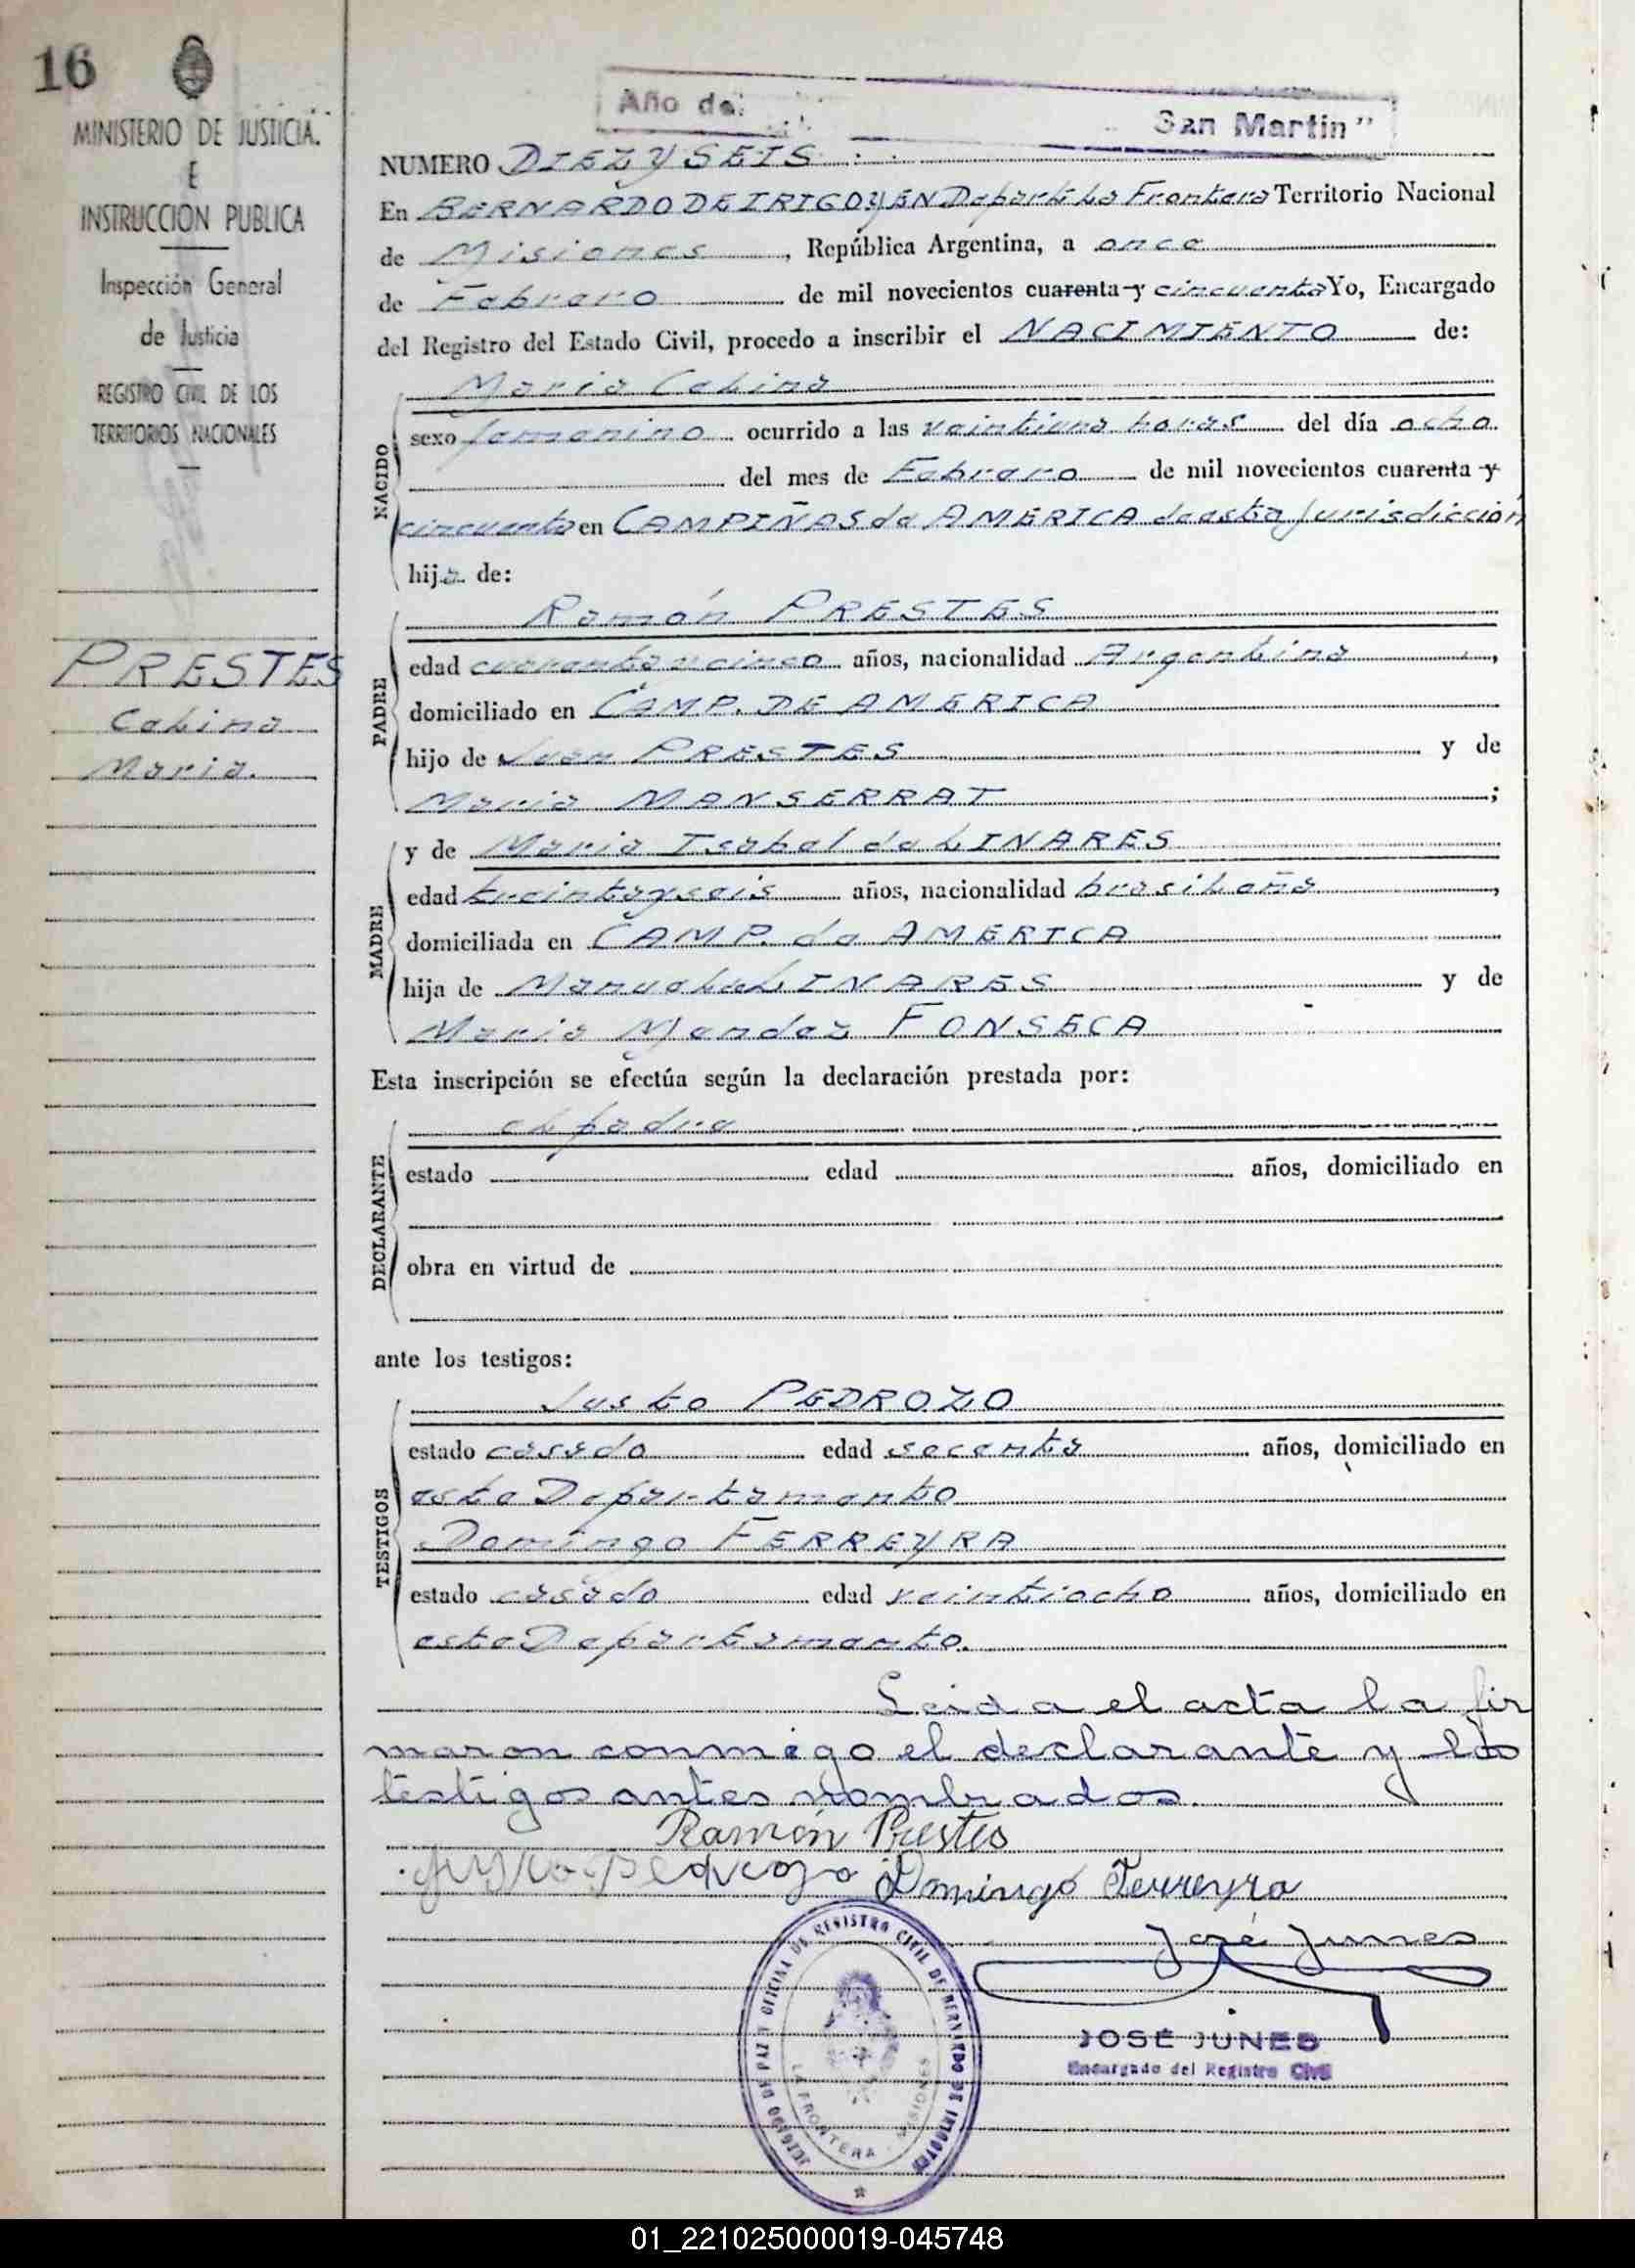 16
MINISTERIO DE JUSTICIA.
E
INSTRUCCION PUBLICA
Inspección General
de Justicia
REGISTRO CIVIL DE LOS
TERRITORIOS NACIONALES
PRESTES
Celina
Maria.
Año del San Martin"
NUMERO DIEZ y SEIS
En BERNARDO DE IRIGOYEN Depart. La Frontera Territorio Nacional
de Misiones, República Argentina, a once
de Febrero de mil novecientos cuarenta y cincuenta Yo, Encargado
del Registro del Estado Civil, procedo a inscribir el NACIMIENTO de:
NACIDO
Maria Celina
sexo femenino ocurrido a las veintiuna horas del día ocho
del mes de Febrero de mil novecientos cuarenta y
cincuenta en CAMPIÑAS de AMERICA de esta jurisdicción
hija de:
PADRE
Ramón PRESTES
edad cuarenta y cinco años, nacionalidad Argentina,
domiciliado en CAMP. DE AMERICA
hijo de Juan PRESTES y de
Maria MANSERRAT;
MADRE
y de Maria Isabel de LINARES
edad treinta y seis años, nacionalidad brasileña,
domiciliada en CAMP. de AMERICA
hija de LINARES y de
Maria Mendez FONSECA
Esta inscripción se efectúa según la declaración prestada por:
DECLARANTE
el padre
estado edad años, domiciliado en
obra en virtud de
ante los testigos:
TESTIGOS
Justo PEDROZO
estado casado edad secenta años, domiciliado en
este Departamento
Domingo FERREYRA
estado casado edad veintiocho años, domiciliado en
este Departamento.
Leida el acta la fir
maron conmigo el declarante y los
testigos antes nombrados.
Ramón Prestes
Justo pedrozo Domingo Ferreyra
José Junes
JOSÉ JUNES
Encargado del Registro Civil
JUZGADO DE PAZ Y OFICINA DE REGISTRO CIVIL DE BERNARDO DE IRIGOYEN
LA FRONTERA - MISIONES
01_221025000019-045748